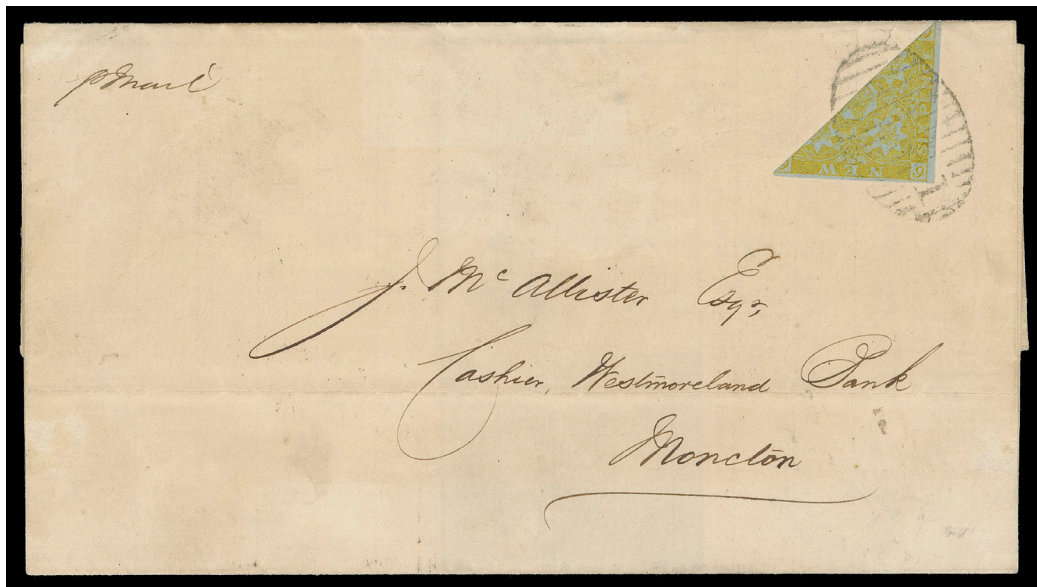 p Mail
6 NEW
SIXPE
1
J. McAllister Esqr,
Cashier, Westmoreland Bank
Moncton